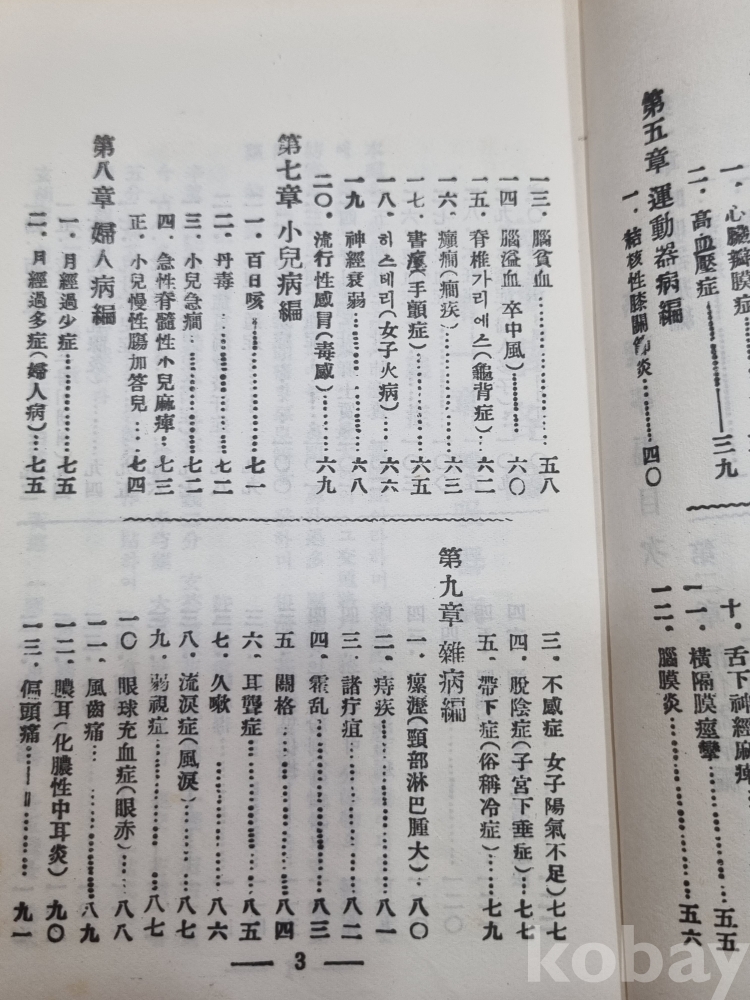 二・高血壓症————三九
第五章 運動器病編
一・結核性膝關節炎………四〇
十・舌下神經麻痺
一一・橫隔膜痙攣………五五
一二・腦膜炎………五六
一三・腦貧血………五八
一四・腦溢血 卒中風)………六〇
一五・脊椎가리에스(龜背症)…六二
一六・癲癎(癎疾)………六三
一七・書痙(手顫症)………六五
一八・히스테리(女子火病)…六六
一九・神經衰弱………六八
二〇・流行性感冒(毒感)…六九
第七章 小兒病編
一・百日咳………七一
二・丹毒………七二
三・小兒急癎………七二
四・急性脊髓性小兒麻痺…七三
正・小兒慢性腸加答兒…七四
第八章 婦人病編
一・月經過少症………七五
二・月經過多症(婦人病)…七五
三・不感症 女子陽氣不足)七七
四・脫陰症(子宮下垂症)…七七
五・帶下症(俗稱冷症)…七九
第九章 雜病編
一・瘰瀝(頸部淋巴腫大)…八〇
二・痔疾………八一
三・諸疔疽………八二
四・霍乱………八三
五 關格………八四
六・耳聾症………八五
七・久嗽………八六
八・流淚症(風淚)………八七
九・弱視症………八七
一〇 眼球充血症(眼赤)…八八
一一・風齒痛………八九
一二・膿耳(化膿性中耳炎)九〇
一三・偏頭痛………九一
— 3 —
kobay